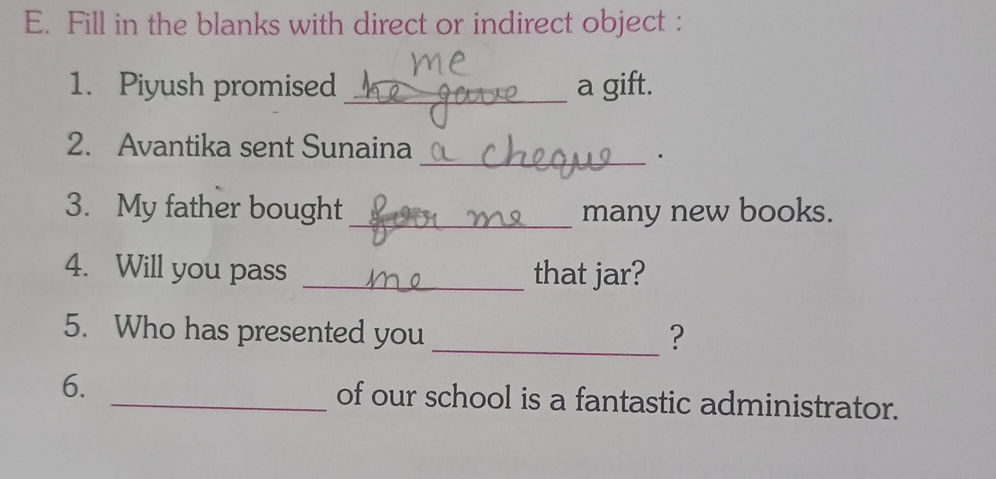 E. Fill in the blanks with direct or indirect object :
me
1. Piyush promised he gave a gift.
2. Avantika sent Sunaina a cheque .
3. My father bought for me many new books.
4. Will you pass me that jar?
5. Who has presented you ?
6. of our school is a fantastic administrator.